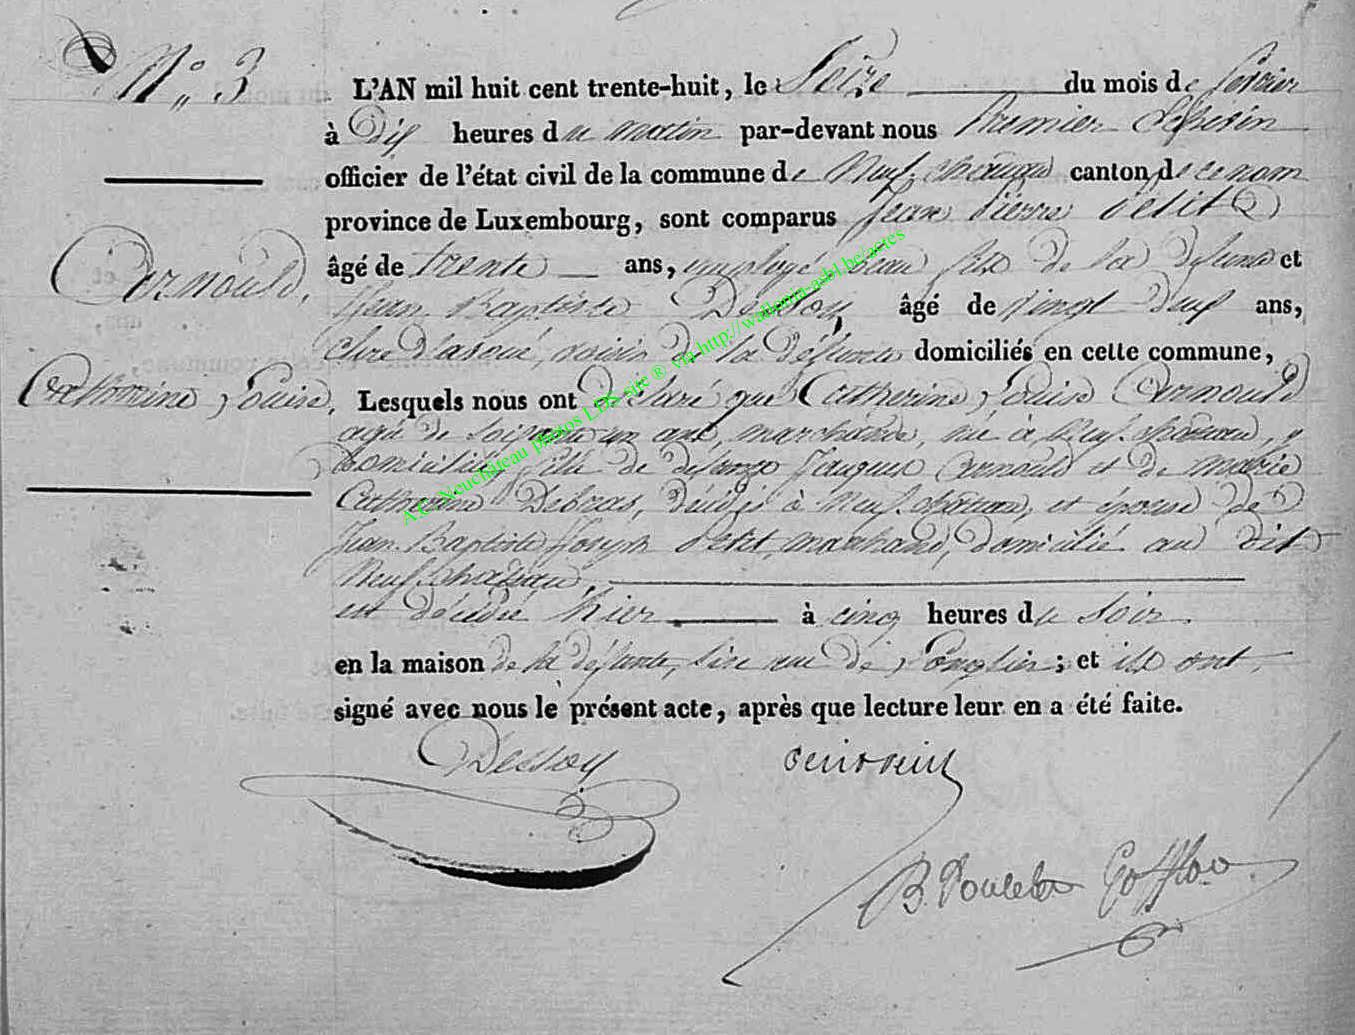 N° 3
L'AN mil huit cent trente-huit, le Seize du mois de fevrier
à Dix heures du matin par-devant nous Premier Echevin
officier de l'état civil de la commune de Neufchateau canton de ce nom
province de Luxembourg, sont comparus Jean Pierre Petit
âgé de trente ans, employé, beau fils de la defunte et
Jean Baptiste Dessoy, âgé de vingt neuf ans,
Clerc d'avoué, voisin de la défunte domiciliés en cette commune,
Arnould,
Catherine Louise,
Lesquels nous ont déclaré que Catherine Louise Arnould
agée de soixante un ans, marchande, né à Neufchateau, y
domiciliée, fille de défunts Jacques Arnould et de Marie
Catherine Debras, décédés à Neufchateau, et épouse de
Jean Baptiste Joseph Petit, marchand, domicilié au dit
Neufchateau,
est décédée hier à cinq heures du soir
en la maison de la défunte, sise rue de Longlier; et ils ont
signé avec nous le présent acte, après que lecture leur en a été faite.
Dessoy
B. Poncelet Gofflot
A.C. Neuchâteau photos LDS site ® via http://wallonia-asbl.be/actes